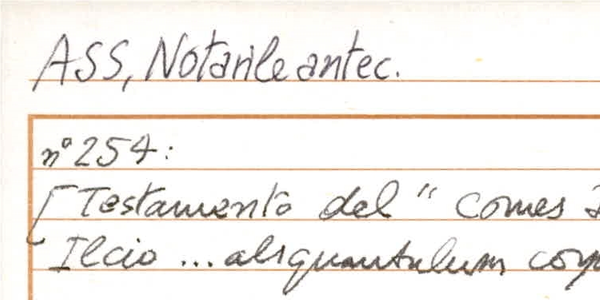 ASS, Notarile antec.
n° 254:
[Testamento del "comes
Ilcio ... aliquantulum